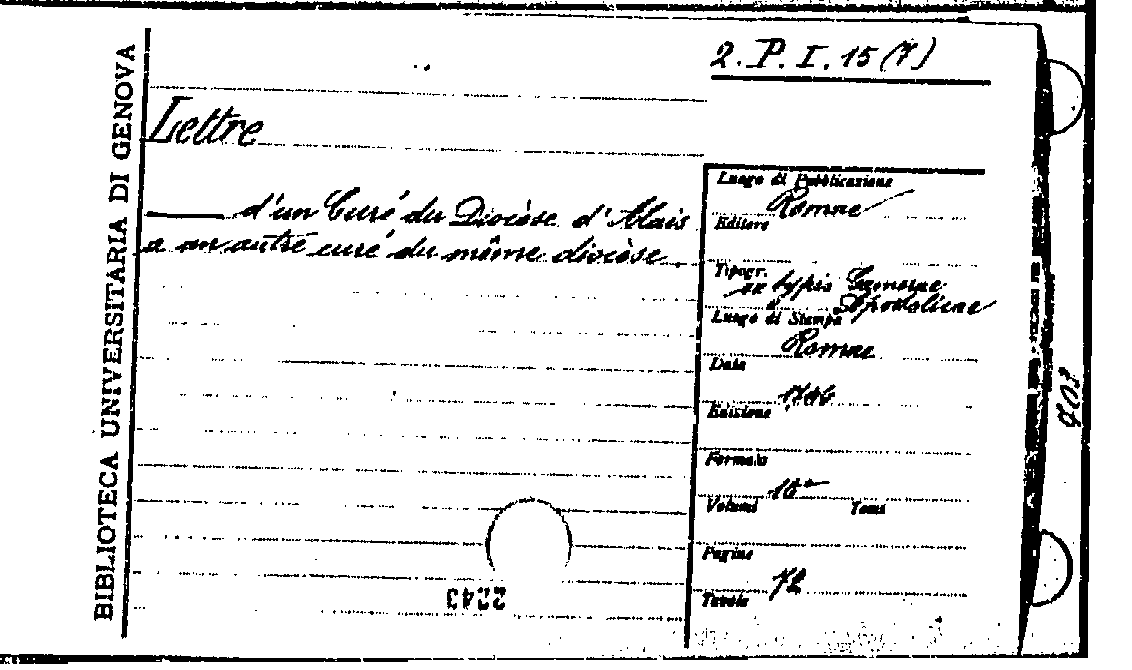 BIBLIOTECA UNIVERSITARIA DI GENOVA
2. P. I. 15 (7)
Lettre
d'un Curé du Diocèse d'Alais
a un autre curé du même diocèse.
Luogo di Pubblicazione
Romae
Editore
Tipogr.
ex typis Camerae
Apostolicae
Luogo di Stampa
Romae
Data
Edizione
Formato
Volumi
Tomi
Pagine
72
Tavole
2243